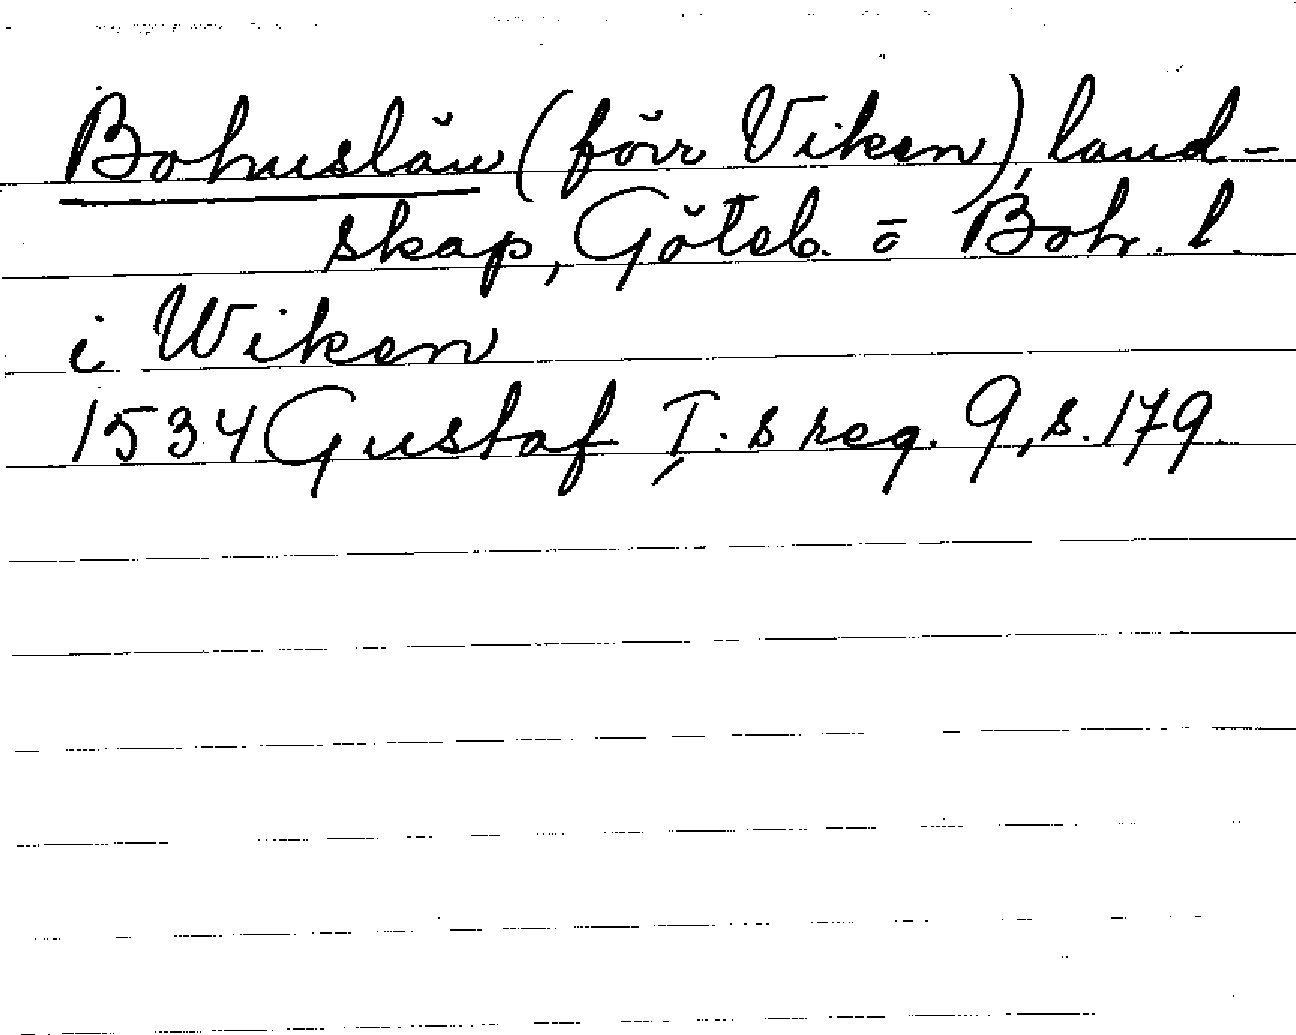 Bohuslän (förr Viken), land-
skap, Göteb. o Boh. l.
i Wiken
1534 Gustaf I:s reg. 9, s. 179.